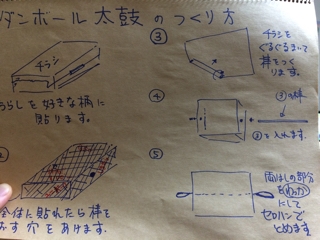 ダンボール太鼓のつくり方
チラシ
ちらしを好きな柄に
貼ります。
全体に貼れたら棒を
さす穴をあけます。
③
チラシを
ぐるぐるまいて
棒をつく
ります。
④
③の棒
③を入れます。
⑤
両はしの部分
をわっか
にして
セロハンで
とめます。